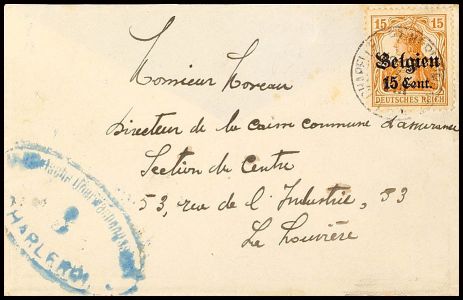 15 15
Belgien
15 Cent.
DEUTSCHES REICH
Monsieur Moreau
Directeur de la caisse commune d'assurance
Section de Centre
53, rue de l'Industrie, 53
La Louvière
CHARLEROI